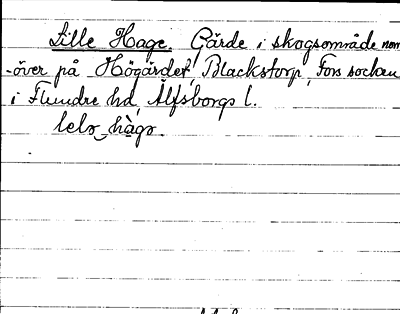 Lille Hage. Gärde i skogsområde norr
-över på Högärdet, Blackstorp, Fors socken
i Flundre hd, Älfsborgs l.